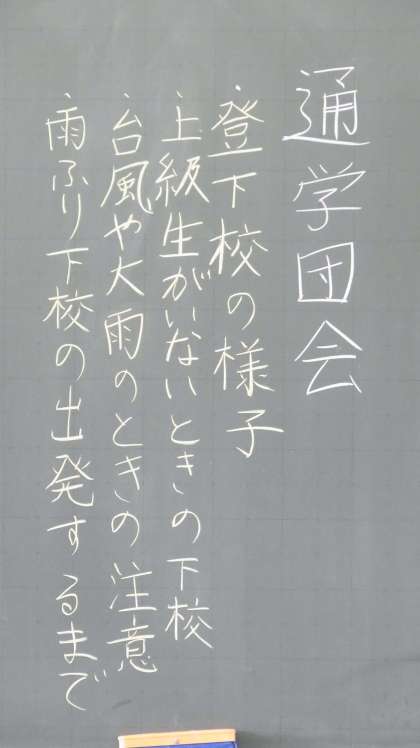 通学団会
・登下校の様子
・上級生がいないときの下校
・台風や大雨のときの注意
・雨ふり下校の出発するまで